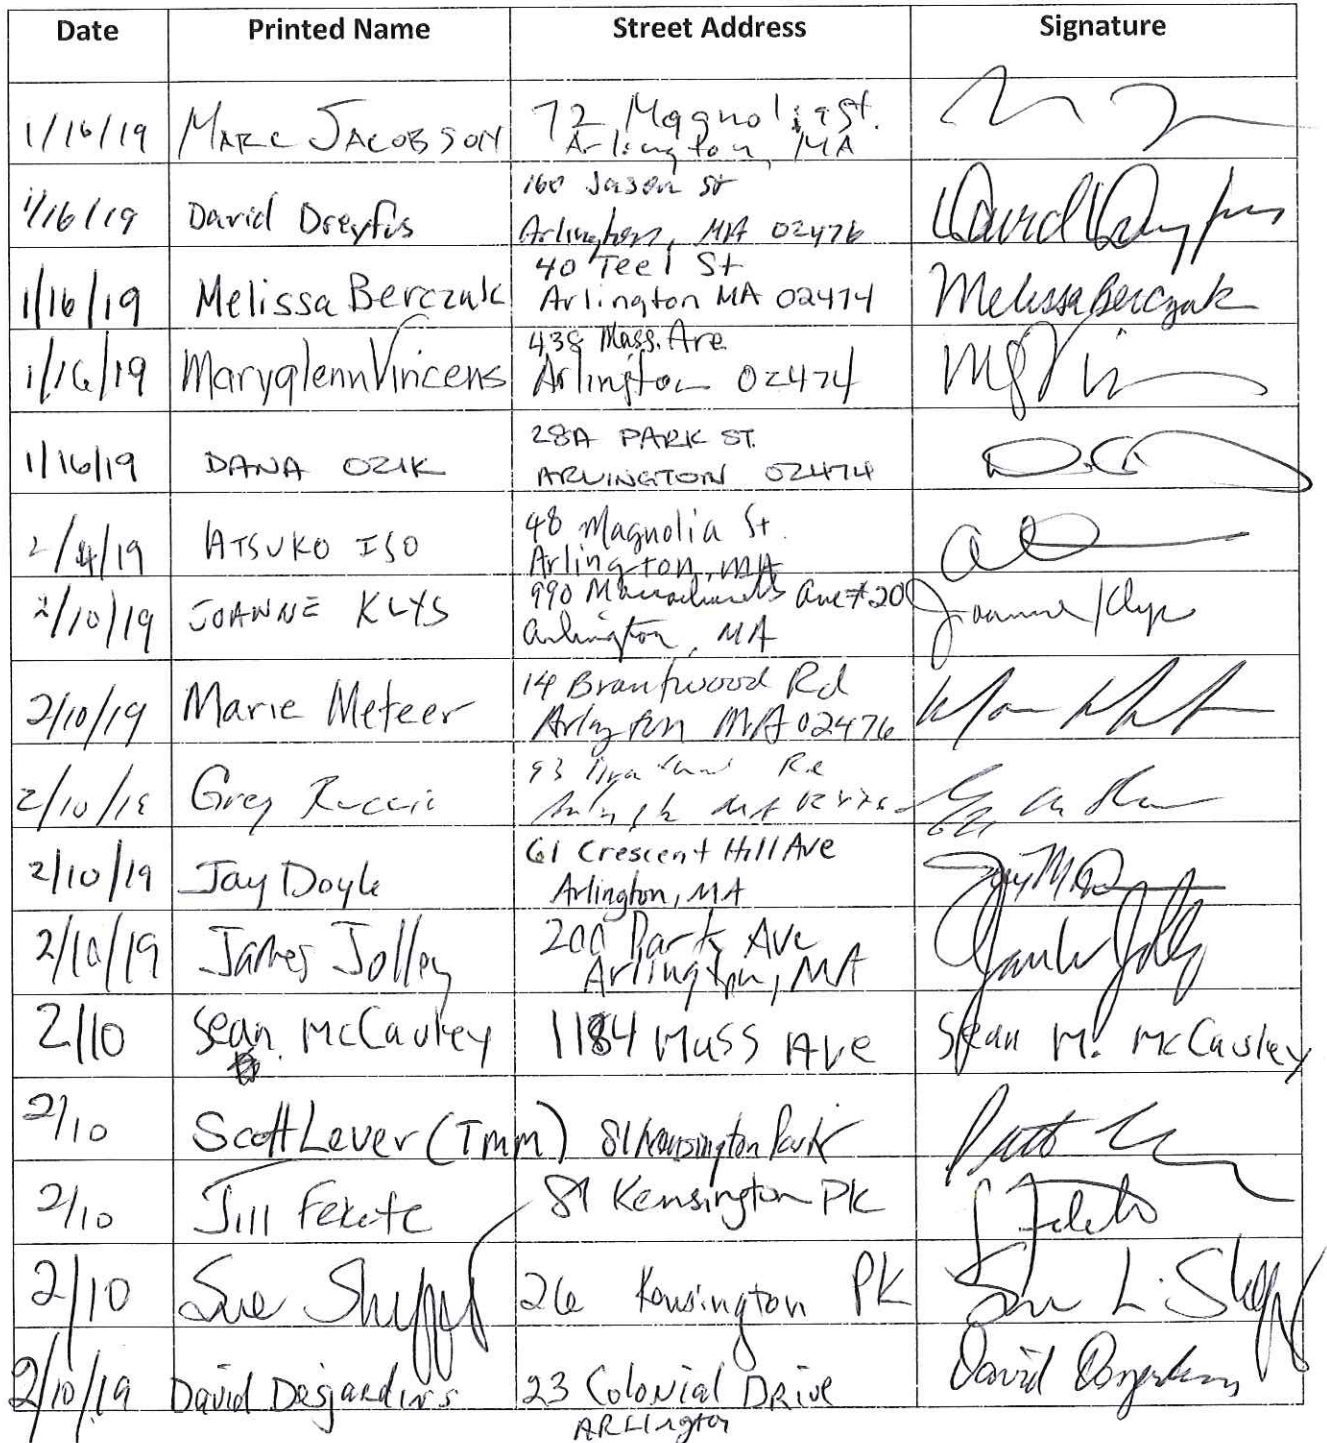 Date Printed Name Street Address Signature
1/16/19 MARC JACOBSON 72 Magnolia St.
Arlington, MA
1/16/19 David Dreyfus 160 Jason St David Dreyfus
Arlington, MA 02476
1/16/19 Melissa Berczuk 40 Teel St Melissa Berczuk
Arlington MA 02474
1/16/19 Maryglenn Vincens 438 Mass. Ave
Arlington 02474
1/16/19 DANA OZIK 28A PARK ST.
ARLINGTON 02474
2/4/19 ATSUKO ISO 48 Magnolia St.
Arlington, MA
2/10/19 JOANNE KLYS 990 Massachusetts Ave #20 Joanne Klys
Arlington, MA
2/10/19 Marie Meteer 14 Brantwood Rd
Arlington MA 02476
Greg 93 Rd
2/10/19 Jay Doyle 61 Crescent Hill Ave
Arlington, MA
2/10/19 James Jolley 200 Park Ave
Arlington, MA
2/10 Sean McCauley 1184 Mass Ave Sean M. McCauley
2/10 Scott Lever (TMM) 81 Kensington Park
2/10 Jill Fekete 81 Kensington Pk J Fekete
2/10 Sue 26 Kensington PK
2/10/19 David Desjardins 23 Colonial Drive David Desjardins
ARLington